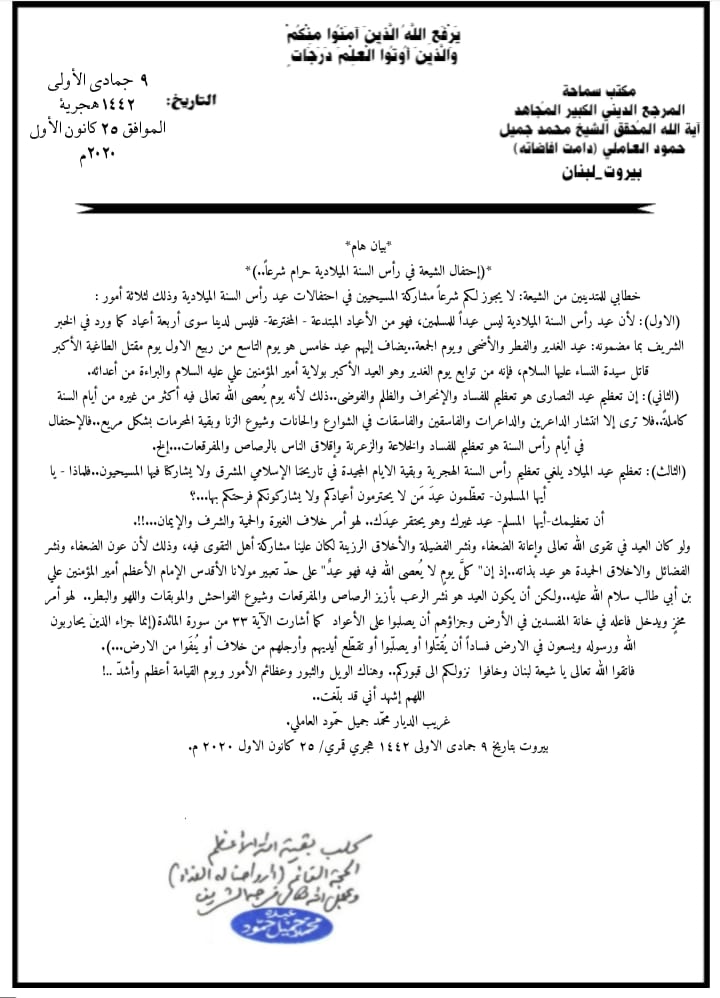 يَرْفَعِ اللهُ الَّذِينَ آمَنُوا مِنكُمْ
وَالَّذِينَ أُوتُوا الْعِلْمَ دَرَجَاتٍ
مكتب سماحة
المرجع الديني الكبير المجاهد
آية الله المحقق الشيخ محمد جميل
حمود العاملي (دامت افاضاته)
بيروت_لبنان
التاريخ:
٩ جمادى الأولى
١٤٤٢ هجرية
الموافق ٢٥ كانون الأول
٢٠٢٠م
*بيان هام*
*(إحتفال الشيعة في رأس السنة الميلادية حرام شرعاً..)*
خطابي للمتدينين من الشيعة: لا يجوز لكم شرعاً مشاركة المسيحيين في احتفالات عيد رأس السنة الميلادية وذلك لثلاثة أمور :
(الاول): لأن عيد رأس السنة الميلادية ليس عيداً للمسلمين، فهو من الأعياد المبتدعة - المخترعة- فليس لدينا سوى أربعة أعياد كما ورد في الخبر
الشريف بما مضمونه: عيد الغدير والفطر والأضحى ويوم الجمعة..يضاف إليهم عيد خامس هو يوم التاسع من ربيع الاول يوم مقتل الطاغية الأكبر
قاتل سيدة النساء عليها السلام، فإنه من توابع يوم الغدير وهو العيد الأكبر بولاية أمير المؤمنين علي عليه السلام والبراءة من أعدائه.
(الثاني): إن تعظيم عيد النصارى هو تعظيم للفساد والإنحراف والظلم والفوضى..ذلك لأنه يوم يُعصى الله تعالى فيه أكثر من غيره من أيام السنة
كاملةً..فلا ترى إلا انتشار الداعرين والداعرات والفاسقين والفاسقات في الشوارع والحانات وشيوع الزنا وبقية المحرمات بشكل مريع..فالإحتفال
في أيام رأس السنة هو تعظيم للفساد والخلاعة والزعرنة وإقلاق الناس بالرصاص والمفرقعات...إلخ.
(الثالث): تعظيم عيد الميلاد يلغي تعظيم رأس السنة الهجرية وبقية الايام المجيدة في تاريخنا الإسلامي المشرق ولا يشاركنا فيها المسيحيون..فلماذا - يا
أيها المسلمون- تعظّمون عيدَ مَن لا يحترمون أعيادكم ولا يشاركونكم فرحتكم بها...؟
أن تعظيمك-أيها المسلم- عيد غيرك وهو يحتقر عيدَك.. لهو أمر خلاف الغيرة والحمية والشرف والإيمان...!!.
ولو كان العيد في تقوى الله تعالى وإعانة الضعفاء ونشر الفضيلة والأخلاق الرزينة لكان علينا مشاركة أهل التقوى فيه، وذلك لأن عون الضعفاء ونشر
الفضائل والاخلاق الحميدة هو عيد بذاته..إذ إن" كلَّ يومٍ لا يُعصى الله فيه فهو عيدٌ" على حدّ تعبير مولانا الأقدس الإمام الأعظم أمير المؤمنين علي
بن أبي طالب سلام الله عليه..ولكن أن يكون العيد هو نشر الرعب بأزيز الرصاص والمفرقعات وشيوع الفواحش والموبقات واللهو والبطر.. لهو أمر
مخزٍ ويدخل فاعله في خانة المفسدين في الأرض وجزاؤهم أن يصلبوا على الأعواد كما أشارت الآية ٣٣ من سورة المائدة(إنما جزاء الذينَ يحاربون
الله ورسوله ويسعون في الارض فساداً أن يُقتّلوا أو يصلّبوا أو تقطّع أيديهم وأرجلهم من خلاف أو يُنفَوا من الارض...).
فاتقوا الله تعالى يا شيعة لبنان وخافوا نزولكم الى قبوركم.. وهناك الويل والثبور وعظائم الأمور ويوم القيامة أعظم وأشدّ ..!
اللهم إشهد أني قد بلّغت..
غريب الديار محمّد جميل حمّود العاملي.
بيروت بتاريخ ٩ جمادى الاولى ١٤٤٢ هجري قمري/ ٢٥ كانون الاول ٢٠٢٠ م.
كلب بقية الله الأعظم
الحجة القائم (أرواحنا له الفداء)
وعجل الله تعالى فرجه الشريف
عبده
محمد جميل حمود